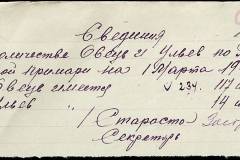 Сведения
количестве Овец и Ульев по З
ой примари на 1 Марта 19
Овец имеется 234. 117
Ульев " 14
/ Староста
Секретарь